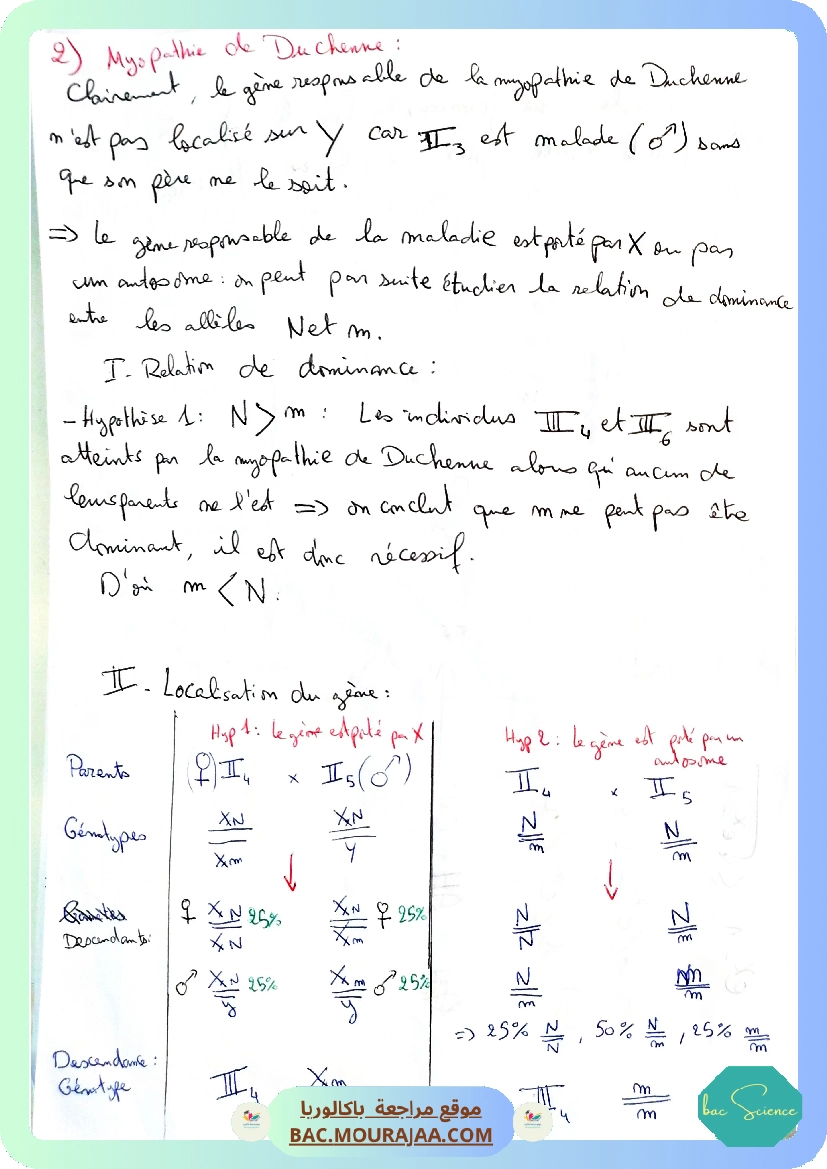 2) Myopathie de Duchenne :
Clairement, le gène responsable de la myopathie de Duchenne
n'est pas localisé sur Y car II3 est malade (♂) sans
que son père ne le soit.
=> Le gène responsable de la maladie est porté par X ou par
un autosome : on peut par suite étudier la relation de dominance
entre les allèles N et m.
I- Relation de dominance :
- Hypothèse 1 : N > m : Les individus III4 et III6 sont
atteints par la myopathie de Duchenne alors qu'aucun de
leurs parents ne l'est => on conclut que m ne peut pas être
dominant, il est donc récessif.
D'où m < N.
II - Localisation du gène :
Hyp 1 : le gène est porté par X
Hyp 2 : le gène est porté par un autosome
Parents (♀) II4 x II5 (♂)
II4 x II5
Génotypes XN/Xm XN/Y
N/m N/m
Descendants : ♀ XN/XN 25% XN/Xm ♀ 25%
N/N N/m
♂ XN/Y 25% Xm/Y ♂ 25%
N/m m/m
=> 25% N/N, 50% N/m, 25% m/m
Descendance :
Génotype III4 Xm
III4 m/m
موقع مراجعة باكالوريا
BAC.MOURAJAA.COM
bac Science